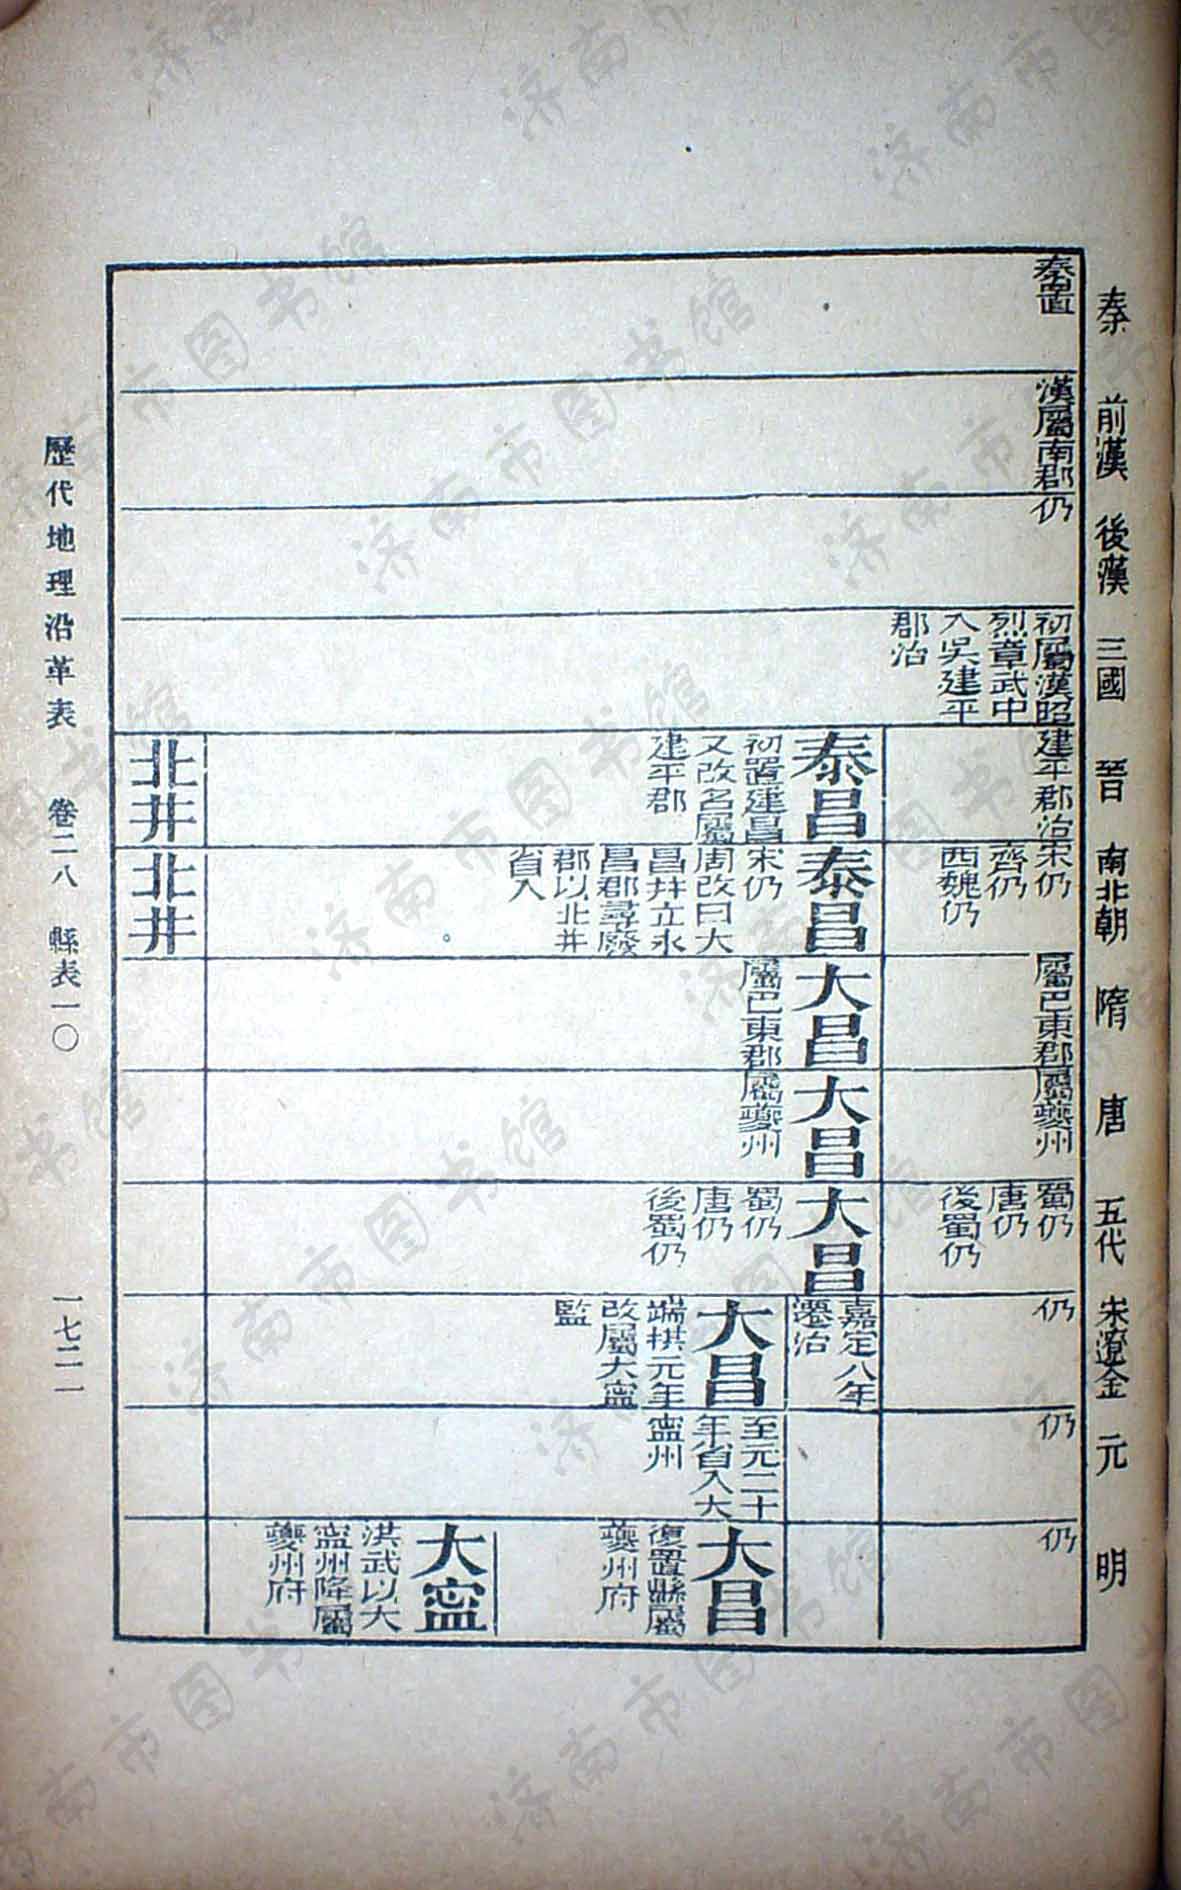 秦
前漢
後漢
三國
晉
南北朝
隋
唐
五代
宋遼金
元
明
秦置
漢屬南郡
仍
初屬漢昭
烈章武中
入吳建平
郡治
建平郡治
宋仍
齊仍
西魏仍
屬巴東郡
屬夔州
蜀仍
唐仍
後蜀仍
仍
仍
仍
泰昌
初置建昌
又改名屬
建平郡
泰昌
宋仍
周改曰大
昌井立永
昌郡尋廢
郡以北井
省入
大昌
屬巴東郡
大昌
屬夔州
大昌
蜀仍
唐仍
後蜀仍
嘉定八年
遷治
大昌
端拱元年
改屬大寧
監
至元二十
年省入大
寧州
大昌
復置縣屬
夔州府
大寧
洪武以大
寧州降屬
夔州府
北井
北井
歷代地理沿革表 卷二八 縣表一〇 一七二一
济南市图书馆